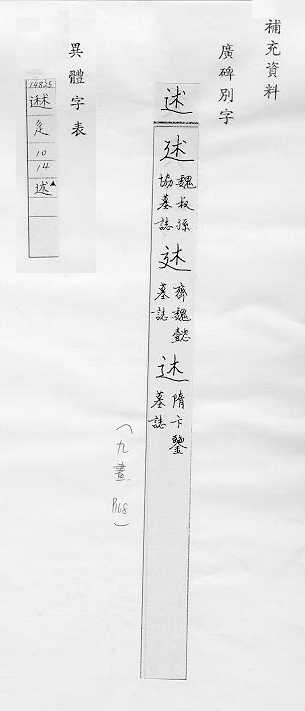 補充資料
廣碑別字
述
魏叔孫
協墓誌
齊魏懿
墓誌
隋卞鑒
墓誌
(九畫 P168)
異體字表
14835
辵
10
14
述